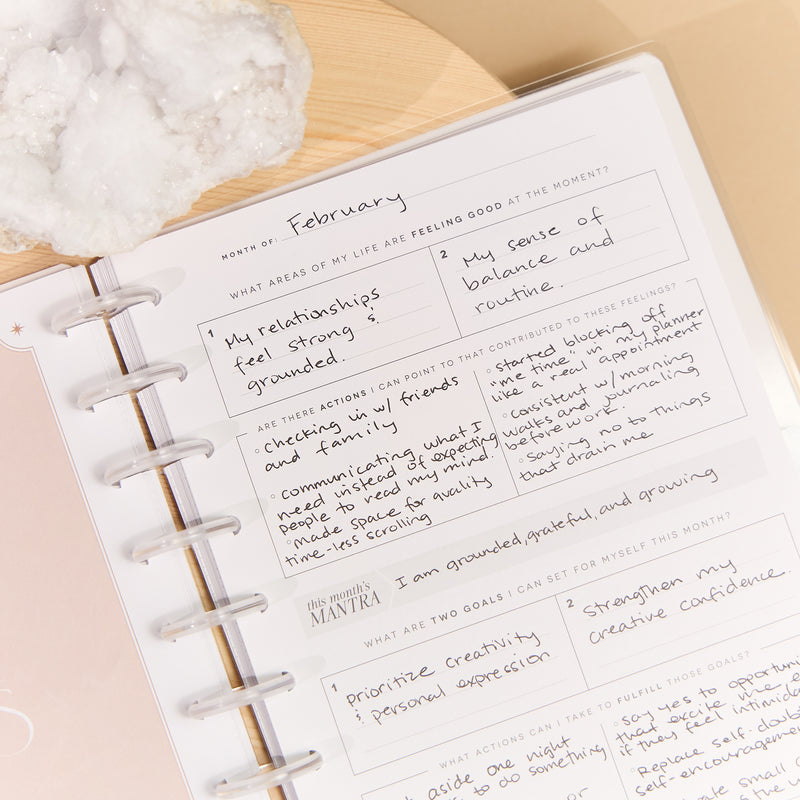 MONTH OF: February
WHAT AREAS OF MY LIFE ARE FEELING GOOD AT THE MOMENT?
1
My relationships
feel strong &
grounded.
2
My sense of
balance and
routine.
ARE THERE ACTIONS I CAN POINT TO THAT CONTRIBUTED TO THESE FEELINGS?
◦ checking in w/ friends
and family
◦ communicating what I
need instead of expecting
people to read my mind.
◦ made space for quality
time-less scrolling
◦ started blocking off
"me time" in my planner
like a real appointment
◦ consistent w/ morning
walks and journaling
before work.
◦ saying no to things
that drain me
this month's
MANTRA
I am grounded, grateful, and growing
WHAT ARE TWO GOALS I CAN SET FOR MYSELF THIS MONTH?
1
prioritize creativity
& personal expression
2
strengthen my
creative confidence.
WHAT ACTIONS CAN I TAKE TO FULFILL THOSE GOALS?
aside one night
to do something
or
◦ say yes to
that excite me
if they feel
◦ Replace self-doubt
small